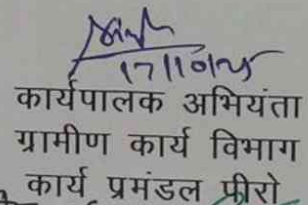 17/10/25
कार्यपालक अभियंता
ग्रामीण कार्य विभाग
कार्य प्रमंडल पीरो